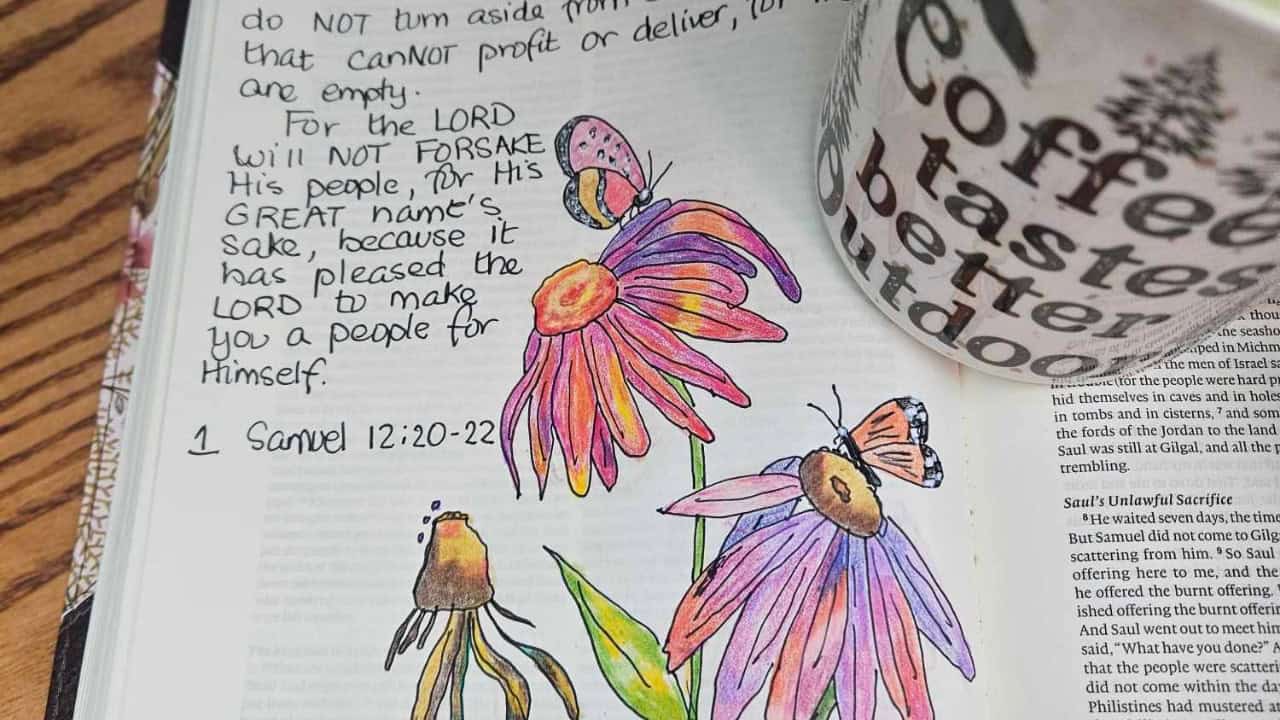 do NOT turn aside from
that canNOT profit or deliver, for
are empty.
For the LORD
will NOT FORSAKE
His people, for His
GREAT name's
sake, because it
has pleased the
LORD to make
you a people for
Himself.
1 Samuel 12:20-22
Coffee
tastes
better
Outdoo
thou
the seasho
in Michm
the men of Israel sa
(for the people were hard p
hid themselves in caves and in hole
in tombs and in cisterns, 7 and som
the fords of the Jordan to the land
Saul was still at Gilgal, and all the p
trembling.
Saul's Unlawful Sacrifice
8 He waited seven days, the time
But Samuel did not come to Gilg
scattering from him. 9 So Saul
offering here to me, and the
he offered the burnt offering.
ished offering the burnt offeri
And Saul went out to meet him
said, "What have you done?" A
that the people were scatteri
did not come within the da
Philistines had mustered at